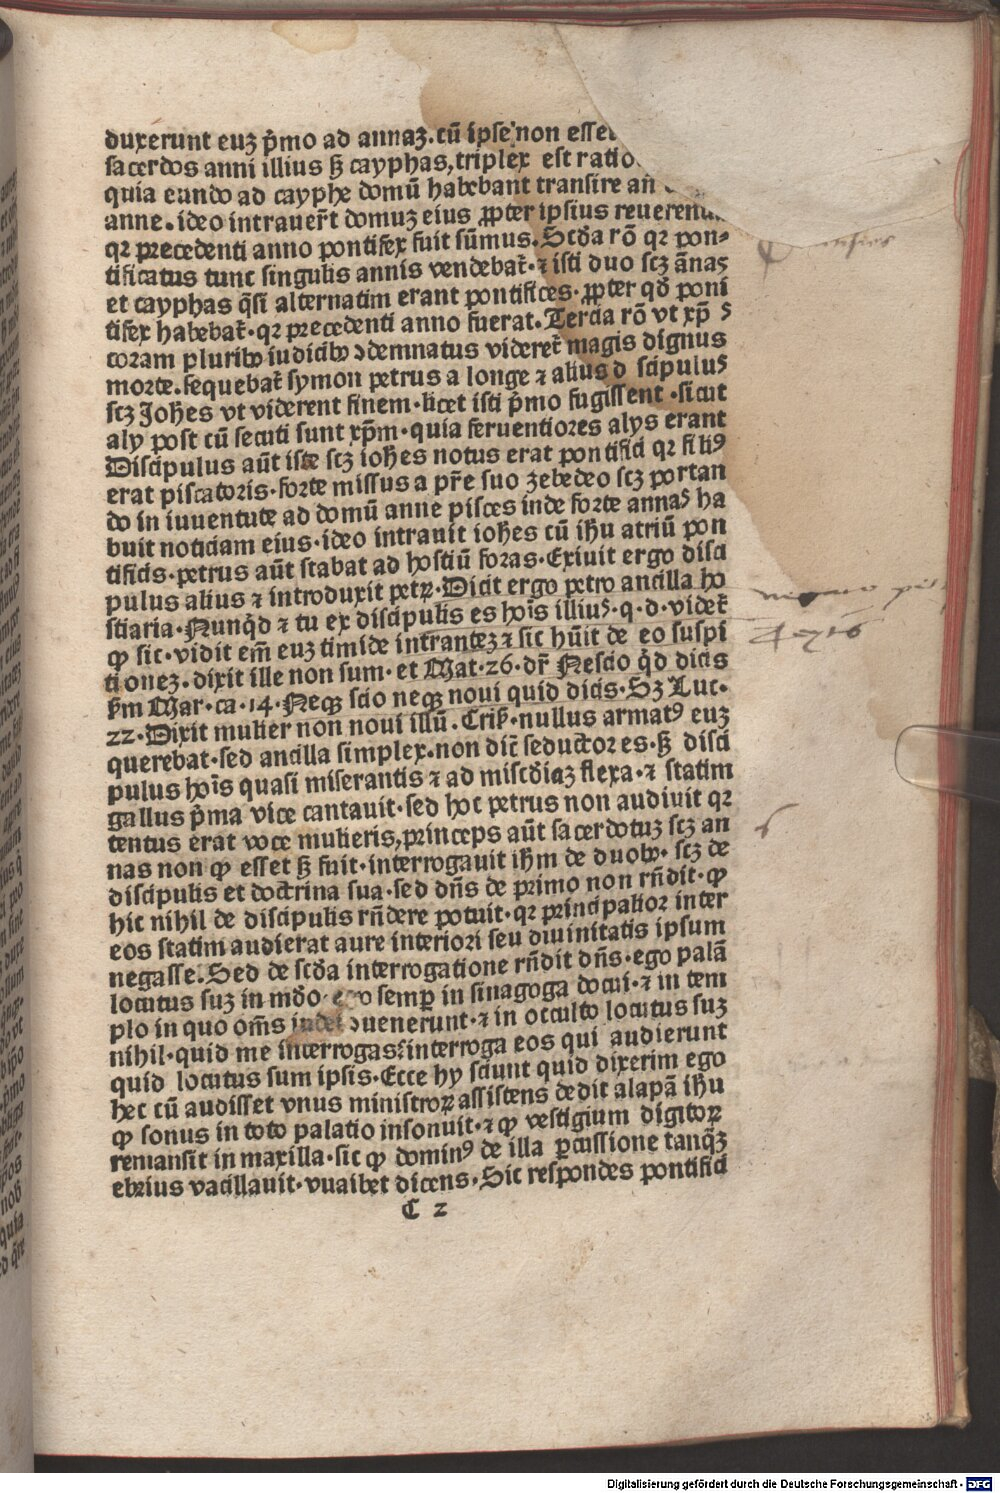 duxerunt euꝫ p̄mo ad annaꝫ. cū ipse non esset
sacerdos anni illius sꝫ cayphas, triplex est ratio
quia eundo ad cayphe domū habebant transire añ
anne. ideo intrauer̄t domuꝫ eius ꝓpter ipsius
qꝛ precedenti anno pontifex fuit sūmus. Scd̄a rō qꝛ pon⸗
tificatus tunc singulis annis vendebat̄· ⁊ isti duo scꝫ ānas
et cayphas q̄si alternatim erant pontifices· ꝓpter qd̄ poni
tifex habebat̄· qꝛ precedenti anno fuerat. Tercia rō vt xp̄s
coram pluribꝰ iudicibꝰ ꝯdemnatus videret̄ magis dignus
morte. sequebat̄ symon petrus a longe ⁊ alius discipulus
scꝫ Joh̄es vt viderent finem· licet isti p̄mo fugissent· sicut
aly post cū secuti sunt xp̄m· quia feruentiores alys erant
Discipulus aūt iste scꝫ ioh̄es notus erat pontifici qꝛ filiꝰ
erat piscatoris· forte missus a pr̄e suo zebedeo scꝫ portan
do in iuuentute ad domū anne pisces inde forte annas ha
buit noticiam eius· ideo intrauit ioh̄es cū ih̄u atriū pon
tificis· petrus aūt stabat ad hostiū foras· Exiuit ergo disci
pulus alius ⁊ introduxit petꝝ· Dicit ergo petro ancilla ho
stiaria· Nunqd̄ ⁊ tu ex discipulis es hoīs illiꝰ· q· d· videt̄
ꝙ sic· vidit em̄ euꝫ timide intranteꝫ ⁊ sic hūit de eo suspi
tioneꝫ. dixit ille non sum· et Mat· 26· dr̄ Nescio qd̄ dicis
s̄m Mar· ca· 14· Neqꝫ scio neqꝫ noui quid dicis· Sꝫ Luc·
22· Dixit mulier non noui illū. Cris̄· nullus armatꝰ euꝫ
querebat· sed ancilla simplex· non dic̄ seductor es· sꝫ disci
pulus hoīs quasi miserantis ⁊ ad misc̄diaꝫ flexa· ⁊ statim
gallus p̄ma vice cantauit· sed hoc petrus non audiuit qꝛ
tentus erat voce mulieris, princeps aūt sacerdotuꝫ scꝫ an
nas non ꝙ esset sꝫ fuit· interrogauit ih̄m de duobꝰ· scꝫ de
discipulis et doctrina sua· sed dn̄s de primo non rn̄dit· ꝙ
hic nihil de discipulis rn̄dere potuit· qꝛ principalior inter
eos statim audierat aure interiori seu diuinitatis ipsum
negasse. Sed de scd̄a interrogatione rn̄dit dn̄s· ego palā
locutus suꝫ in mdo· ego semꝑ in sinagoga docui· ⁊ in tem
plo in quo om̄s iudei ꝯuenerunt· ⁊ in occulto locutus suꝫ
nihil· quid me interrogas? interroga eos qui audierunt
quid locutus sum ipsis· Ecce hy sciunt quid dixerim ego
hec cū audisset vnus ministroꝝ assistens dedit alapā ih̄u
ꝙ sonus in toto palatio insonuit· ⁊ ꝙ vestigium digitoꝝ
remansit in maxilla· sic ꝙ dominꝰ de illa ꝑcussione tanqꝫ
ebrius vacillauit· vuaibet dicens· Sic respondes pontifici
C 2
Digitalisierung gefördert durch die Deutsche Forschungsgemeinschaft · DFG